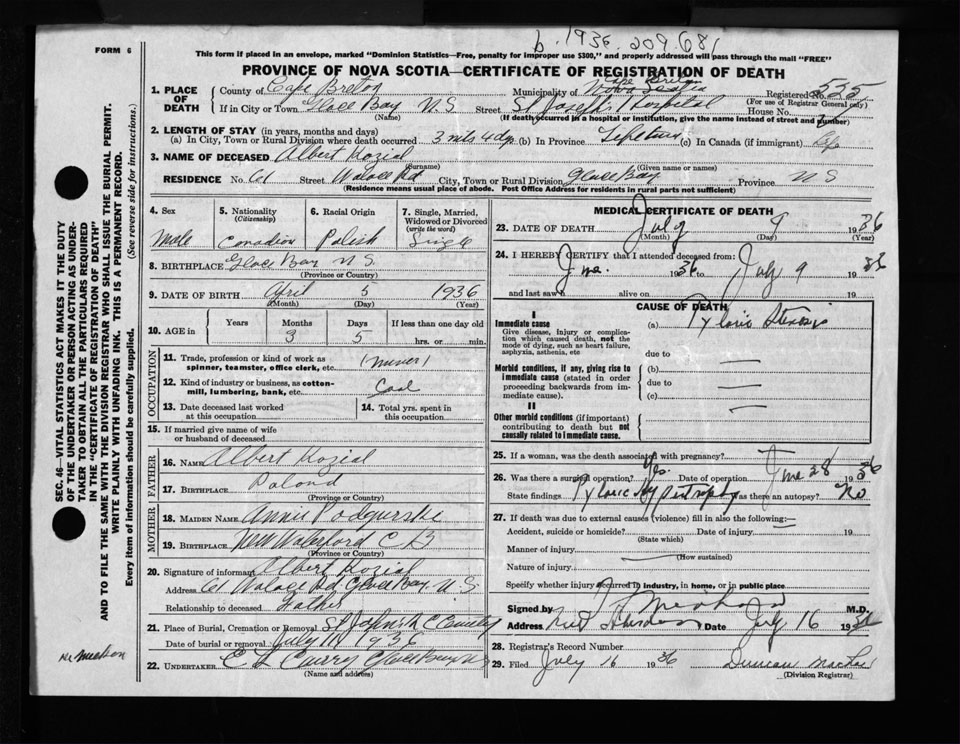 b. 1936. 209.681
FORM 6
This form if placed in an envelope, marked "Dominion Statistics—Free, penalty for improper use $300," and properly addressed will pass through the mail "FREE"
PROVINCE OF NOVA SCOTIA—CERTIFICATE OF REGISTRATION OF DEATH
1. PLACE OF DEATH
County of Cape Breton Municipality of Cape Breton Nova Scotia Registered No. 535
(For use of Registrar General only)
If in City or Town Glace Bay N.S. Street St Josephs Hospital House No.
(Name) If death occurred in a hospital or institution, give the name instead of street and number)
2. LENGTH OF STAY (in years, months and days)
(a) In City, Town or Rural Division where death occurred 3 mts 4 dys (b) In Province Lifetime (c) In Canada (if immigrant) Life
3. NAME OF DECEASED Albert Kozial
(Surname) (Given name or names)
RESIDENCE No. 61 Street Wallace Rd City, Town or Rural Division Glace Bay Province N S
(Residence means usual place of abode. Post Office Address for residents in rural parts not sufficient)
4. Sex Male
5. Nationality (Citizenship) Canadian
6. Racial Origin Polish
7. Single, Married, Widowed or Divorced (write the word) Single
8. BIRTHPLACE Glace Bay N.S.
(Province or Country)
9. DATE OF BIRTH April 5 1936
(Month) (Day) (Year)
10. AGE in Years Months 3 Days 5 If less than one day old hrs. or min.
OCCUPATION
11. Trade, profession or kind of work as spinner, teamster, office clerk, etc. (Miner)
12. Kind of industry or business, as cotton-mill, lumbering, bank, etc. Coal
13. Date deceased last worked at this occupation
14. Total yrs. spent in this occupation
15. If married give name of wife or husband of deceased
FATHER
16. NAME Albert Kozial
17. BIRTHPLACE Poland
(Province or Country)
MOTHER
18. MAIDEN NAME Annie Podgurske
19. BIRTHPLACE New Waterford C B
(Province or Country)
20. Signature of informant Albert Kozial
Address 61 Wallace Rd Glace Bay. N.S
Relationship to deceased Father
21. Place of Burial, Cremation or Removal St Johns Cemetery
Date of burial or removal July 11 1936
22. UNDERTAKER E L Curry Glace Bay N.S
(Name and address)
MEDICAL CERTIFICATE OF DEATH
23. DATE OF DEATH July 9 1936
(Month) (Day) (Year)
24. I HEREBY CERTIFY that I attended deceased from:
June 1936 to July 9 1936
and last saw h alive on 19
CAUSE OF DEATH
I
Immediate cause
Give disease, injury or complication which caused death, not the mode of dying, such as heart failure, asphyxia, asthenia, etc
(a) Pyloric Stenosis
due to
Morbid conditions, if any, giving rise to immediate cause (stated in order proceeding backwards from immediate cause).
(b)
due to
(c)
II
Other morbid conditions (if important) contributing to death but not causally related to immediate cause.
25. If a woman, was the death associated with pregnancy?
26. Was there a surgical operation? Yes. Date of operation June 28 1936
State findings Pyloric Hypertrophy Was there an autopsy? No
27. If death was due to external causes (violence) fill in also the following:—
Accident, suicide or homicide? Date of injury 19
(State which)
Manner of injury
(How sustained)
Nature of injury
Specify whether injury occurred in industry, in home, or in public place
Signed by M.D.
Address Date July 16 1936
28. Registrar's Record Number
29. Filed July 16 1936 Duncan
(Division Registrar)
SEC. 46—VITAL STATISTICS ACT MAKES IT THE DUTY
OF THE UNDERTAKER OR PERSON ACTING AS UNDER-
TAKER TO OBTAIN ALL THE PARTICULARS REQUIRED
IN THE "CERTIFICATE OF REGISTRATION OF DEATH"
AND TO FILE THE SAME WITH THE DIVISION REGISTRAR WHO SHALL ISSUE THE BURIAL PERMIT.
WRITE PLAINLY WITH UNFADING INK. THIS IS A PERMANENT RECORD.
Every item of information should be carefully supplied. (See reverse side for instructions.)